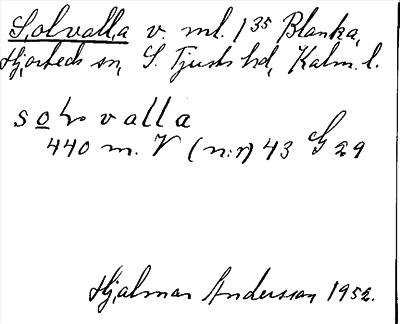 Solvalla v. ml. 1³⁵ Blanka,
Hjorteds sn, S. Tjusts hd, Kalm. l.
so̲lvalla
440 m. V (n:r) 43 G 29
Hjalmar Andersson 1952.